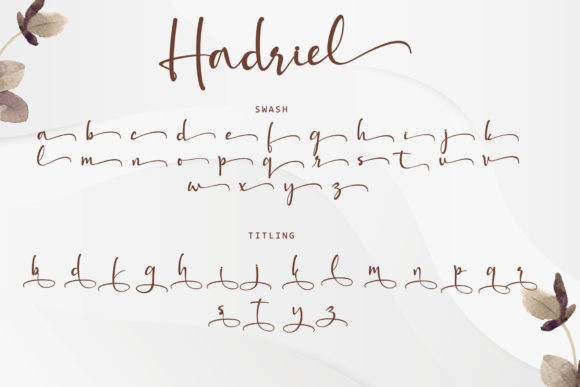 Hadriel
SWASH
a b c d e f g h i j k
l m n o p q r s t u v
w x y z
TITLING
b d f g h i j k l m n p q r
s t y z